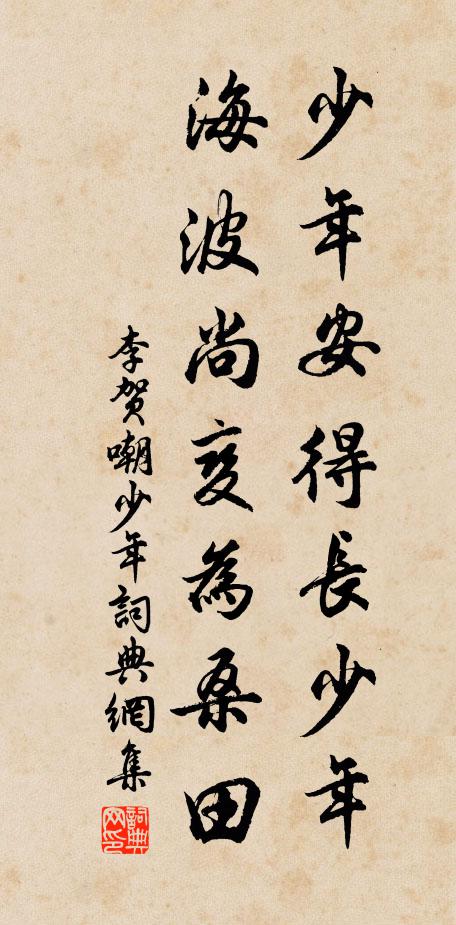 少年安得長少年
海波尚变為桑田
李贺嘲少年詞典網集
詞典
网印